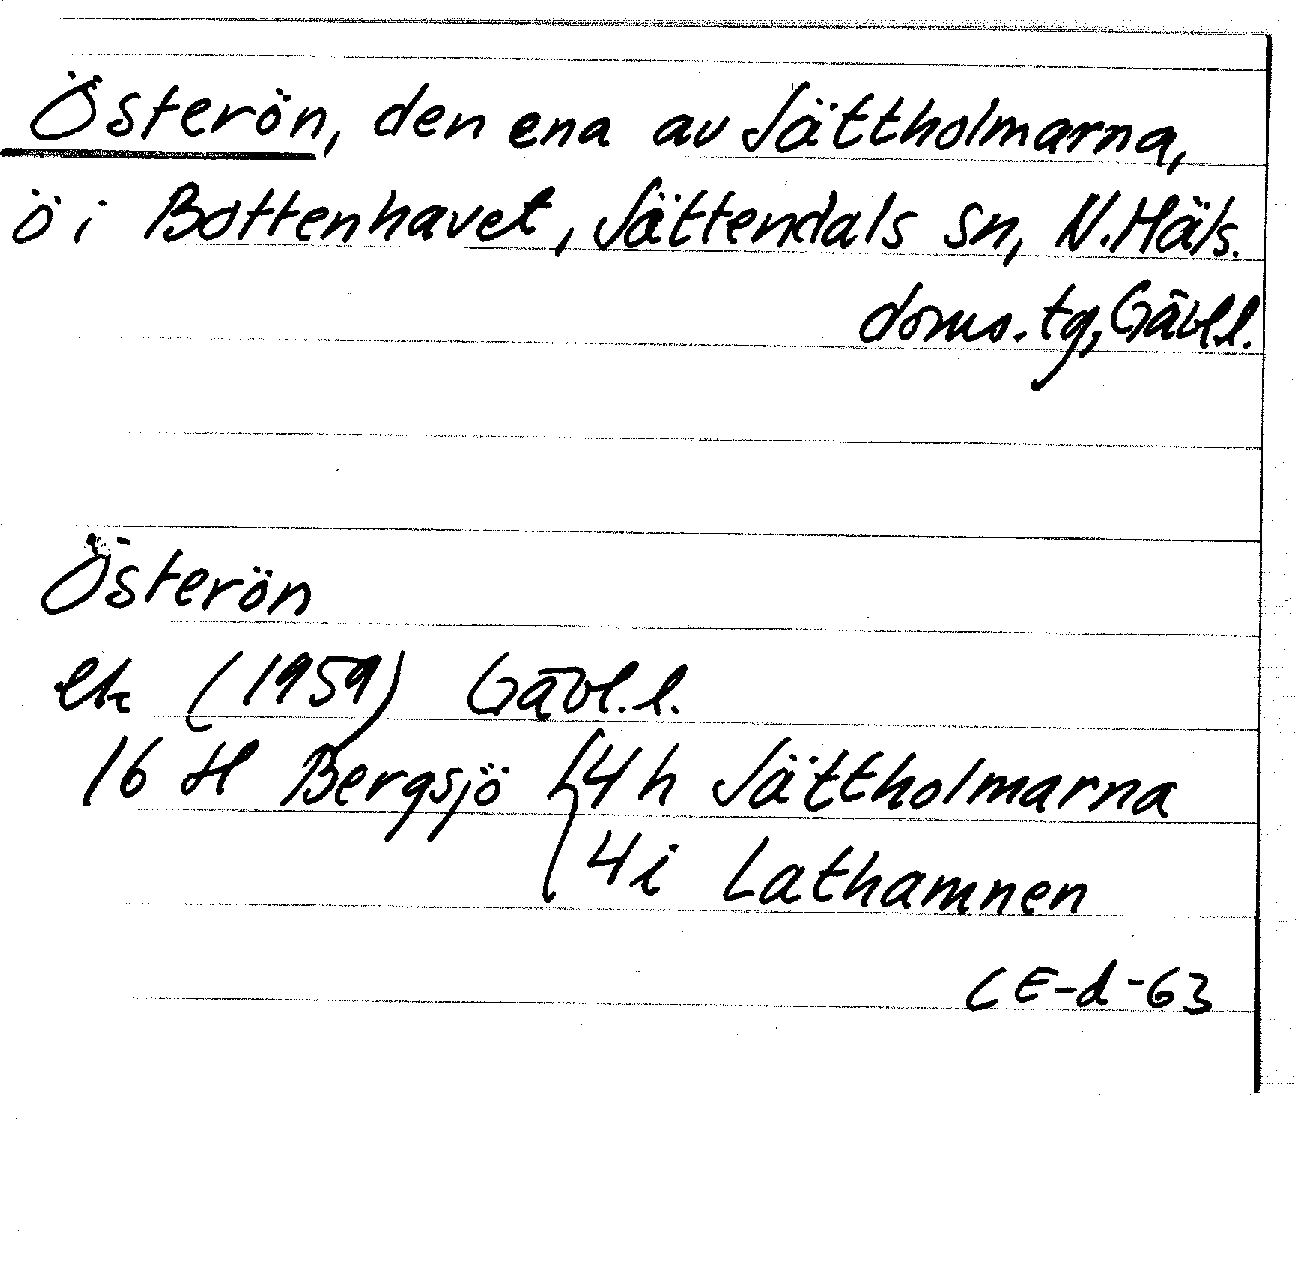 Österön, den ena av Jättholmarna,
ö i Bottenhavet, Jättendals sn, N. Häls.
doms. tg, Gävl.l.
Österön
ek (1959) Gävl.l.
16 H Bergsjö { 4 h Jättholmarna
4 i Lathamnen
CE-d-63